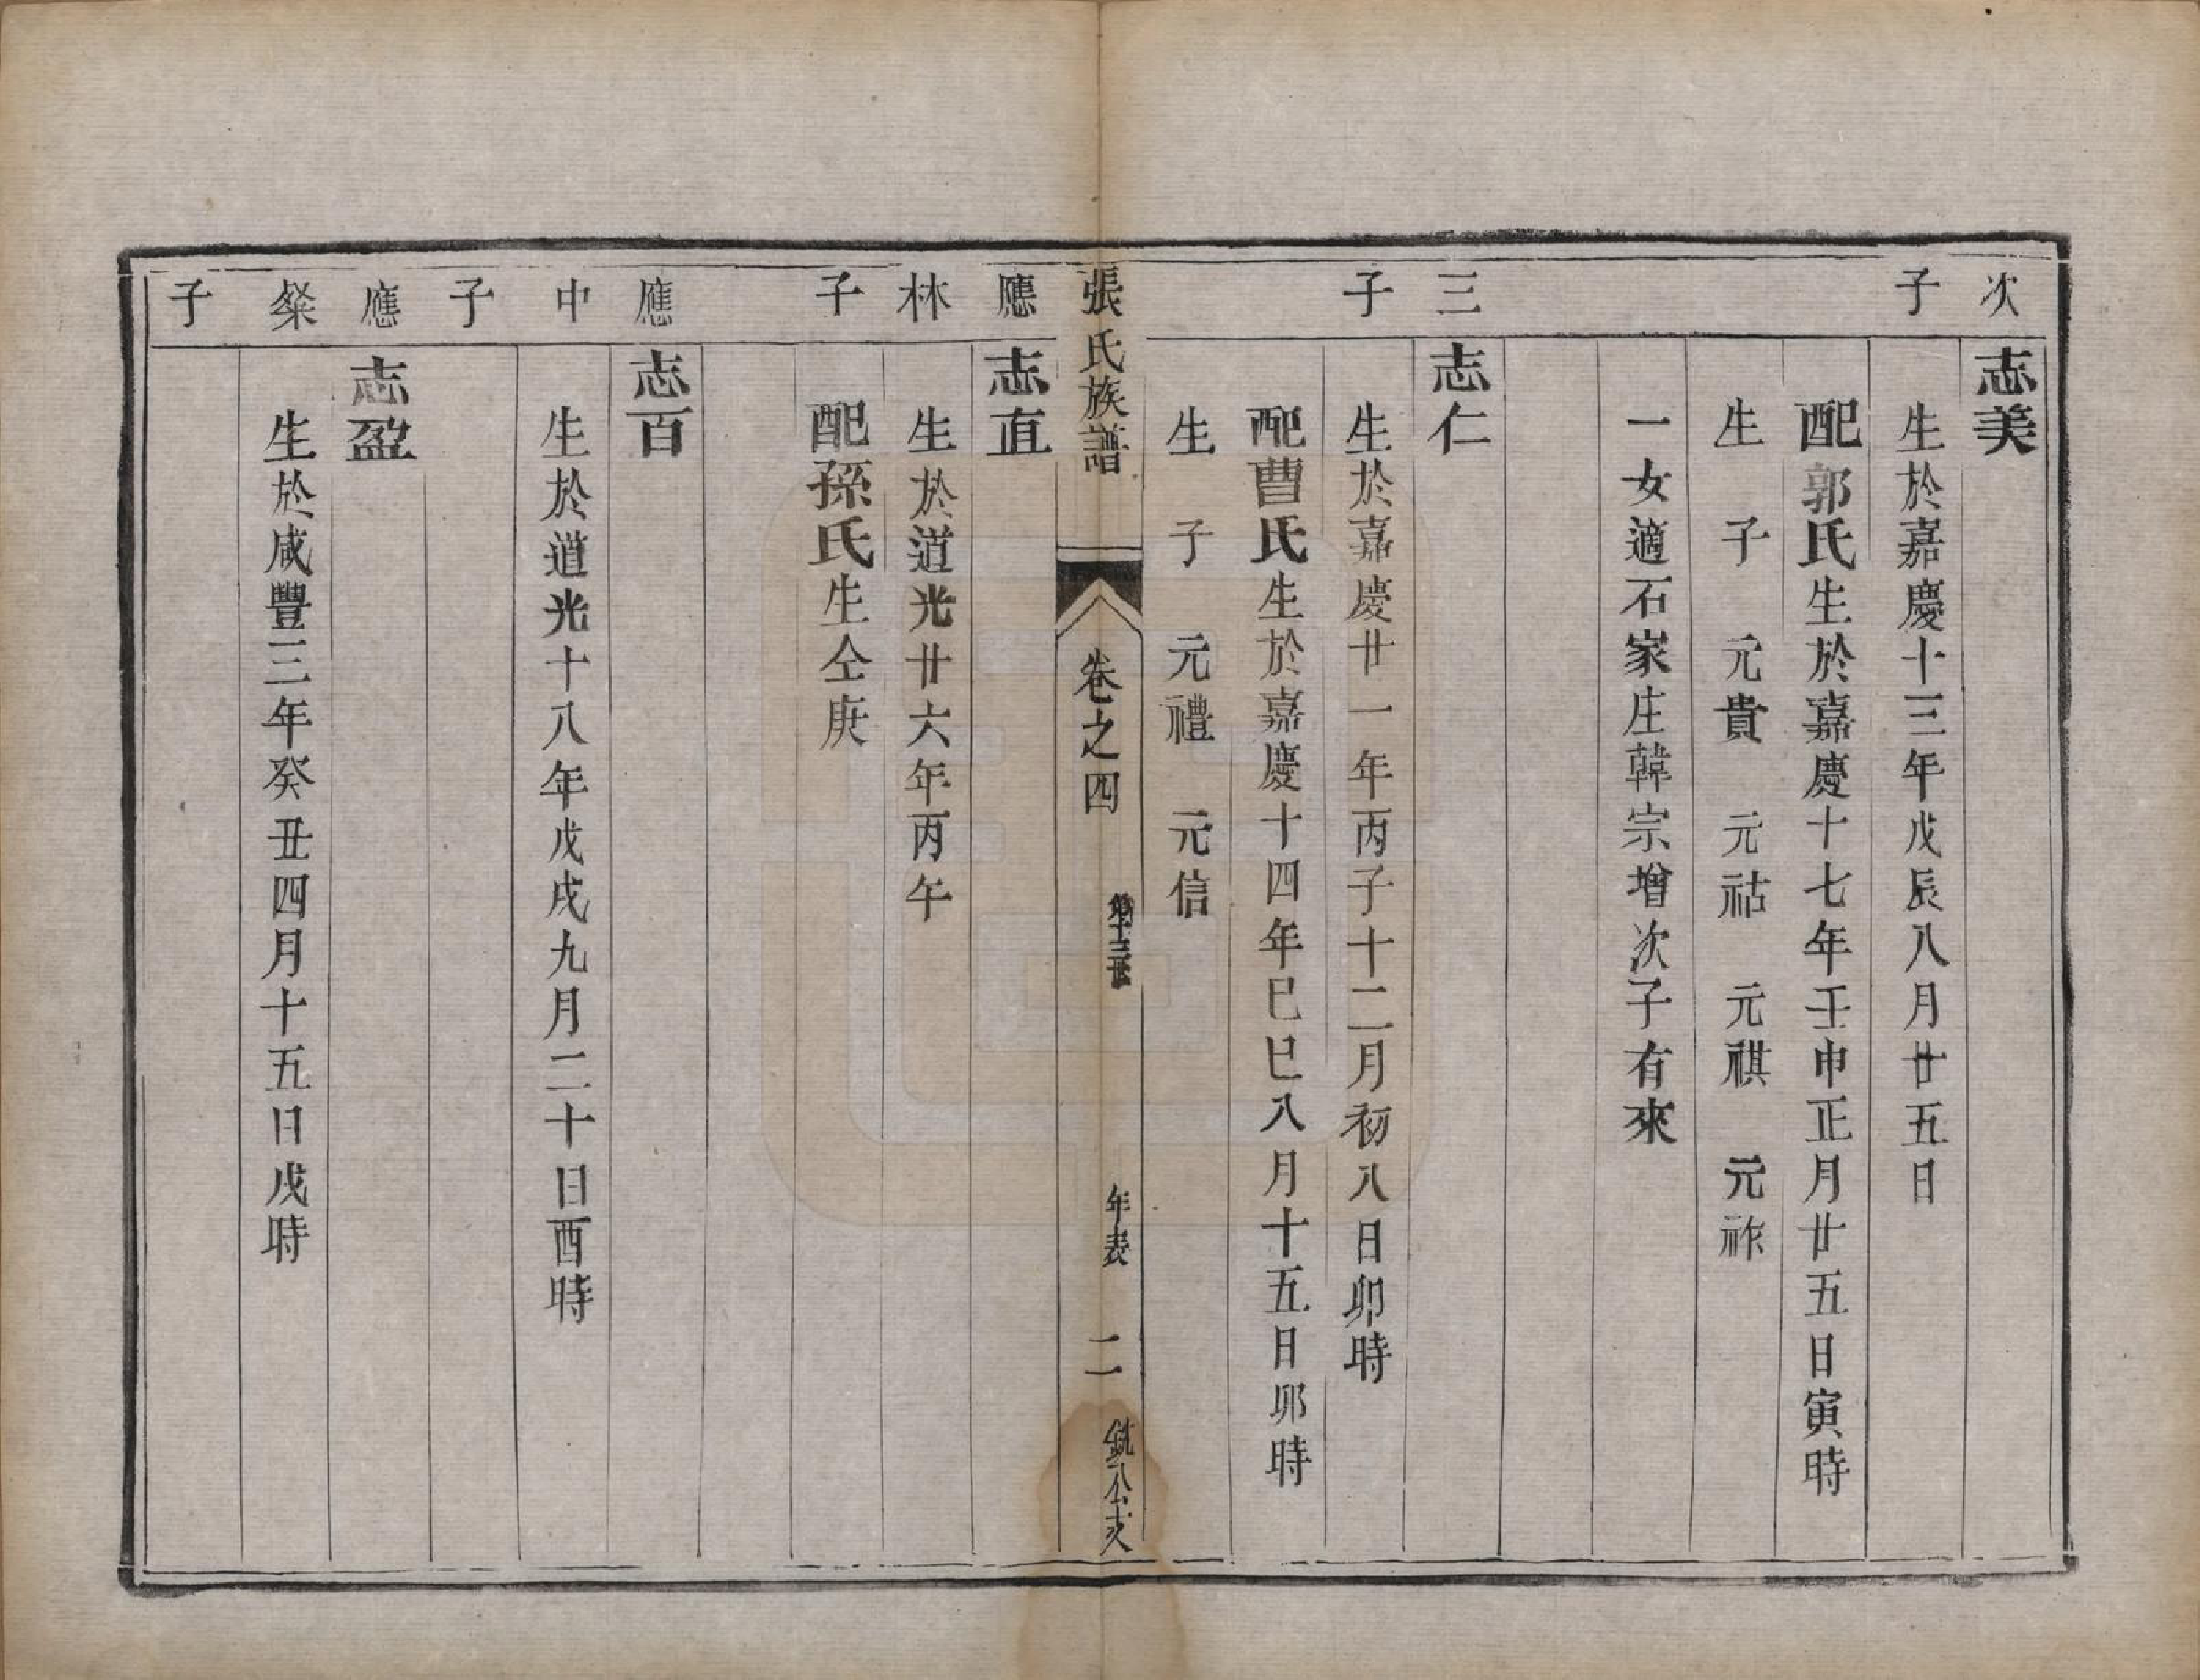 次子
志美
生於嘉慶十三年戊辰八月廿五日
配郭氏生於嘉慶十七年壬申正月廿五日寅時
生子元貴元祜元祺元祚
一女適石家庄韓宗增次子有來
三子
志仁
生於嘉慶廿一年丙子十二月初八日卯時
配曹氏生於嘉慶十四年巳巳八月十五日卯時
生子元禮元信
張氏族譜
卷之四
第十三世
年表
二
銃公支
應林子
志直
生於道光廿六年丙午
配孫氏生仝庚
應中子
志百
生於道光十八年戊戌九月二十日酉時
應粲子
志盈
生於咸豐三年癸丑四月十五日戌時